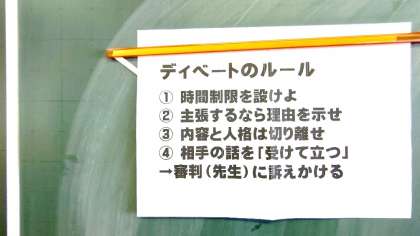 ディベートのルール
① 時間制限を設けよ
② 主張するなら理由を示せ
③ 内容と人格は切り離せ
④ 相手の話を「受けて立つ」
→審判(先生)に訴えかける